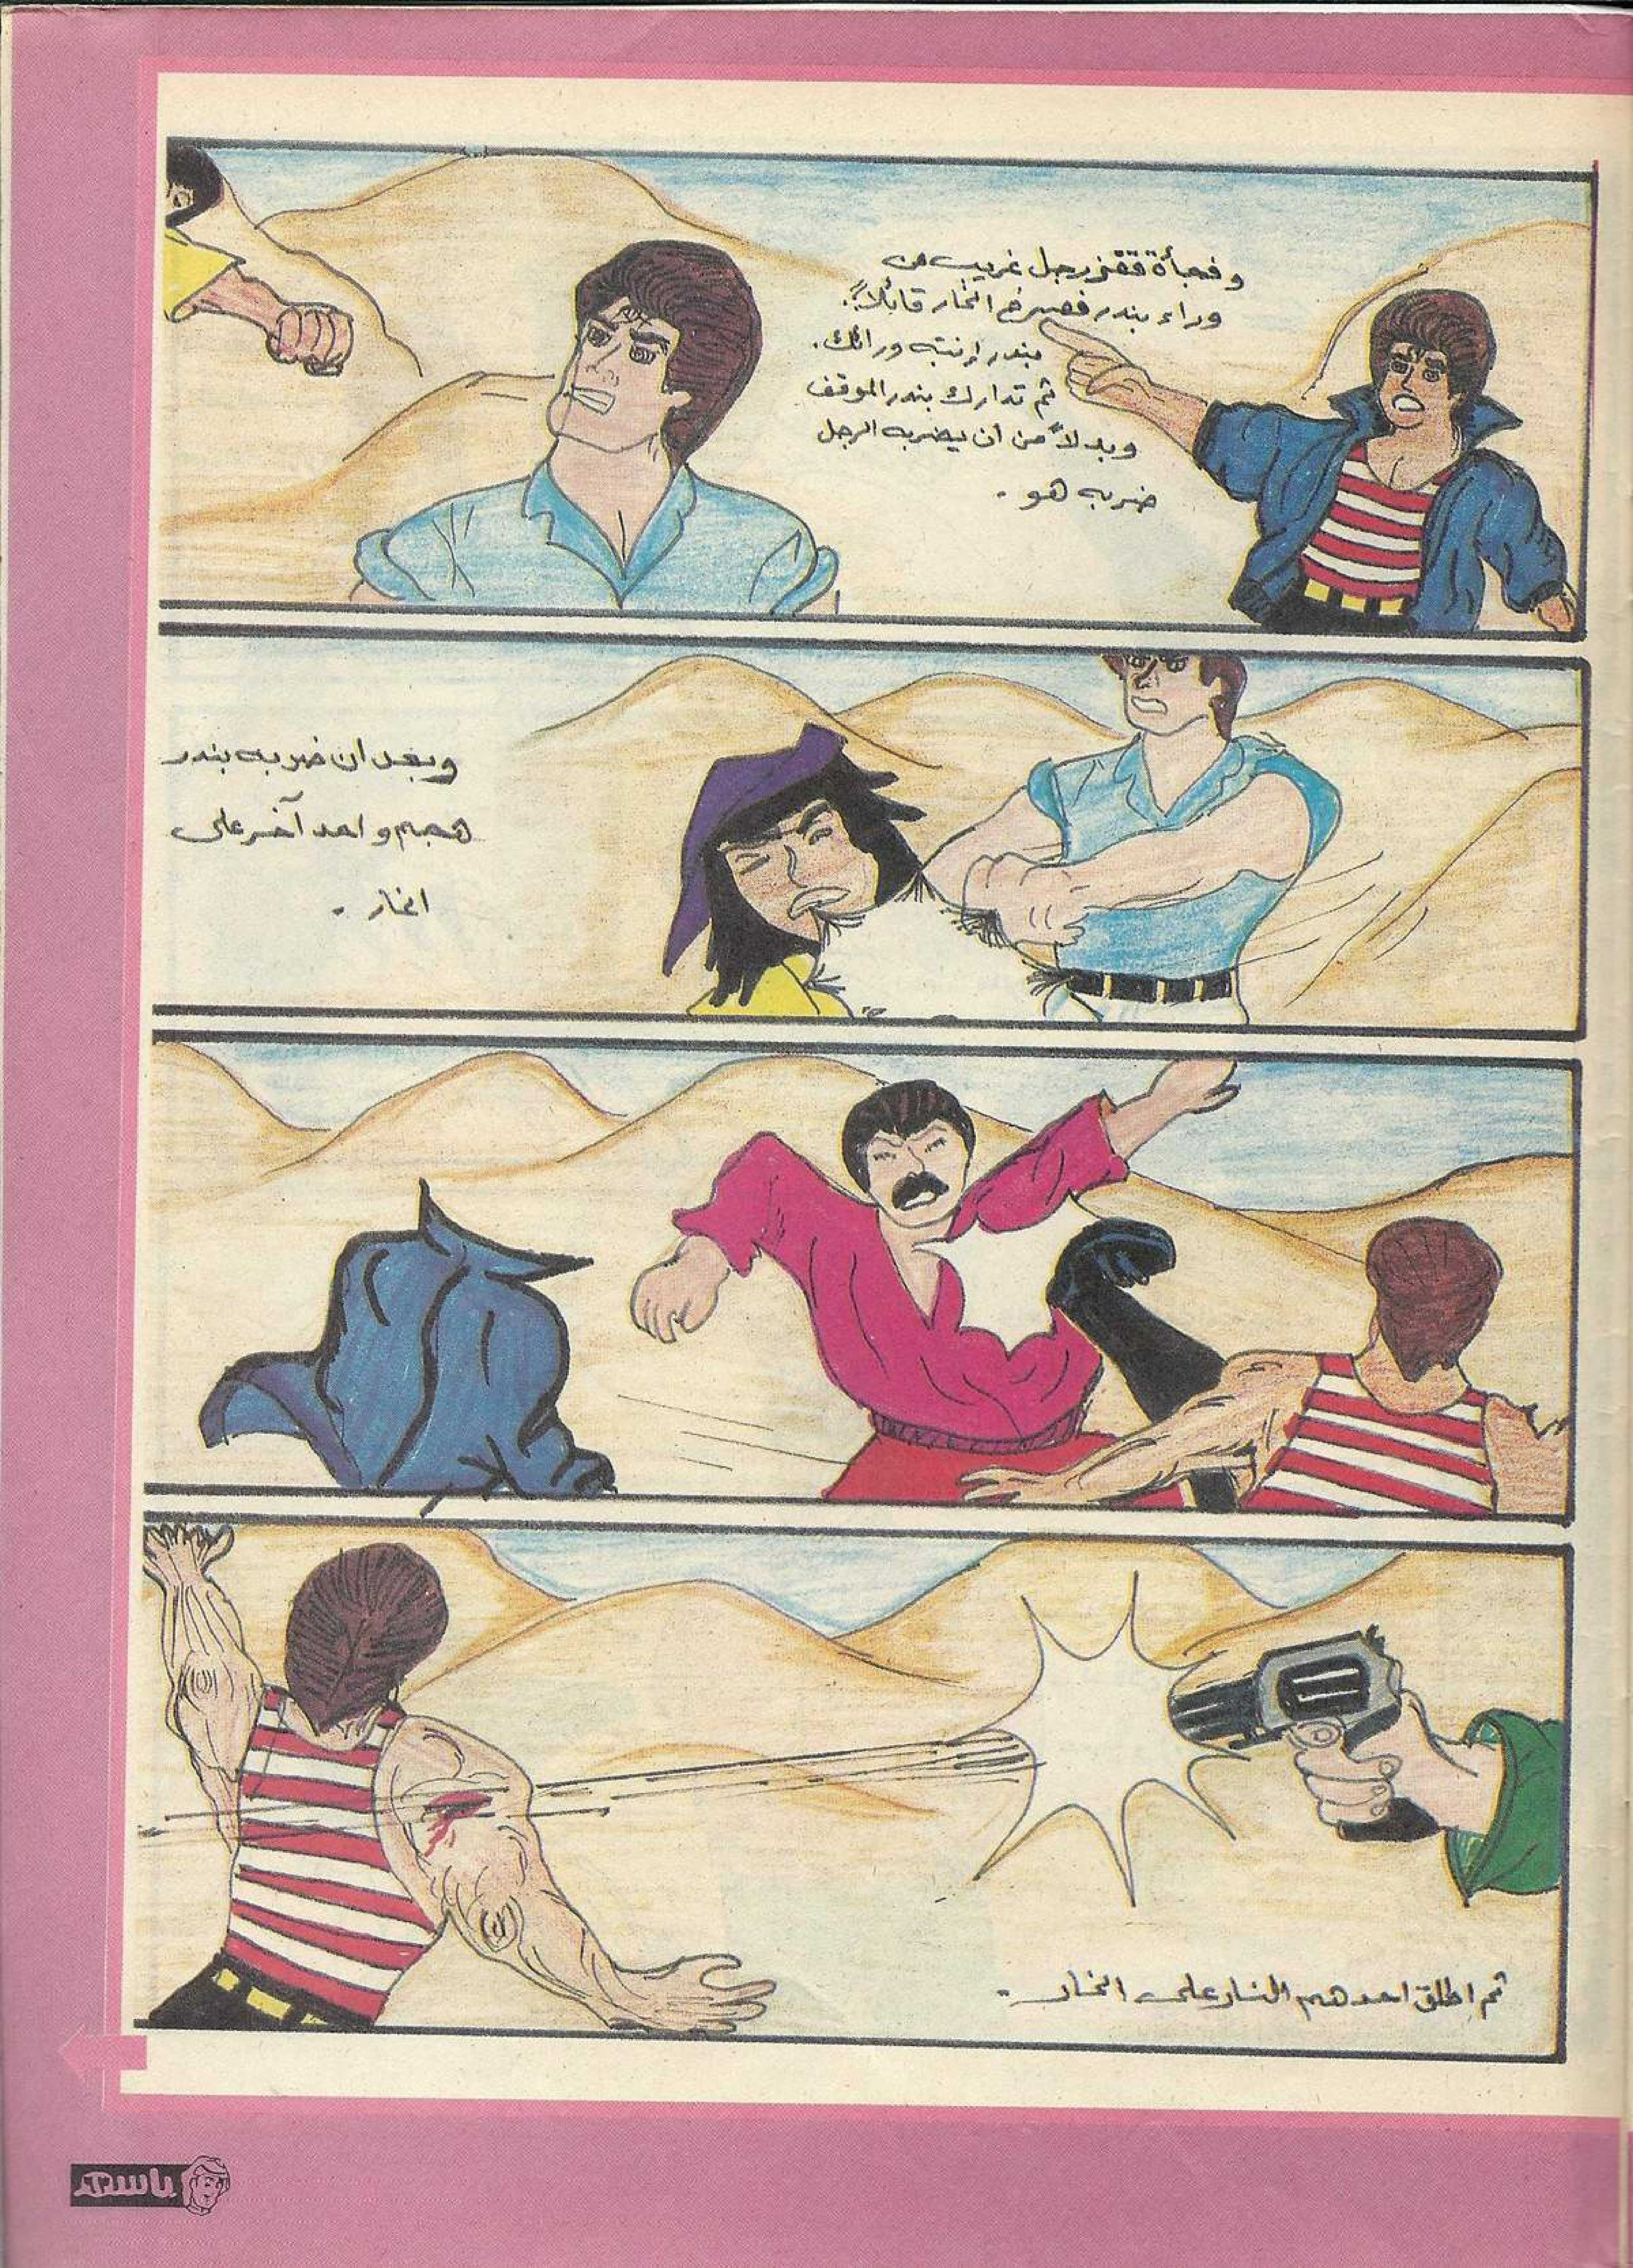 وفجأة قفز رجل غريب من
وراء بندر فصرخ الخار قائلاً:
بندر إنتبه ورائك.
ثم تدارك بندر الموقف
وبدلاً من أن يضربه الرجل
ضربه هو.
وبعد ان ضربه بندر
هجم واحد آخر على
الخار.
ثم اطلق احدهم النار على الخار.
باسم